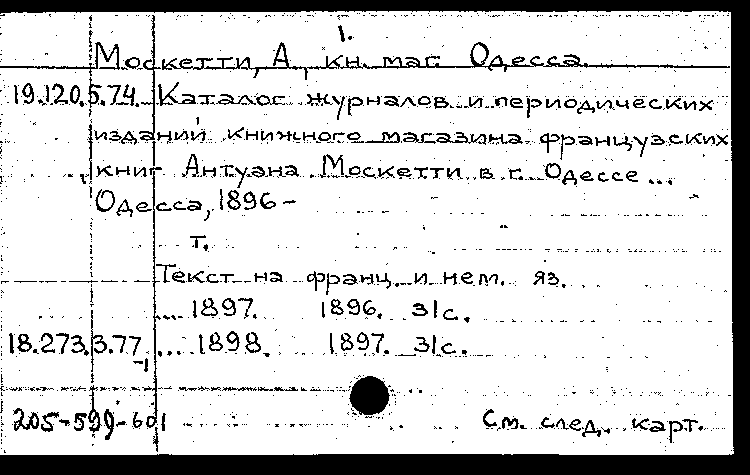 1.
Москетти, А., кн. маг. Одесса.
19.120.5.74 Каталог журналов и периодических
изданий книжного магазина французских
книг Антуана Москетти в г. Одессе ...
Одесса, 1896 –
т.
Текст на франц. и нем. яз.
... 1897. 1896. 31с.
18.273.3.77 ... 1898. 1897. 31с.
-1
205-599-601 См. след. карт.